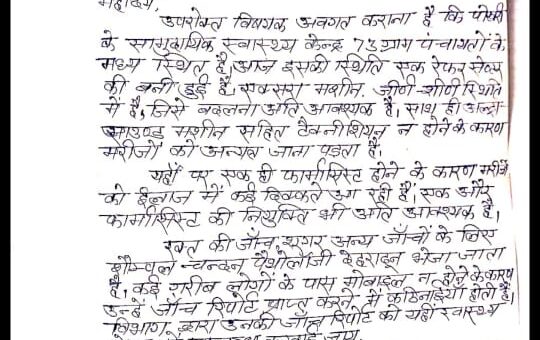 महोदय,
उपरोक्त विषयक अवगत कराना है कि पोखरी
के सामुदायिक स्वास्थ्य केन्द्र 73 ग्राम पंचायतों के
मध्य स्थित है, आज इसकी स्थिति एक रेफर सेन्टर
की बनी हुई है, एक्सरा मशीन जीर्ण-शीर्ण स्थिति
में है, जिसे बदलना अति आवश्यक है, साथ ही अल्ट्रा-
साउण्ड मशीन सहित टैक्नीशियन न होने के कारण
मरीजों को अन्यत्र जाना पड़ता है।
यहाँ पर एक ही फार्मासिस्ट होने के कारण मरीजों
को ईलाज में कई दिक्कतें आ रही हैं, एक और
फार्मासिस्ट की नियुक्ति भी अति आवश्यक है,
रक्त की जाँच, शुगर अन्य जाँचों के लिए
सैम्पल चन्दन पैथोलॉजी देहरादून भेजा जाता
है, कई गरीब लोगों के पास मोबाइल न होने के कारण
उन्हें जाँच रिपोर्ट प्राप्त करने में कठिनाईयां होती हैं,
विभाग द्वारा उनकी जाँच रिपोर्ट को यही स्वास्थ्य